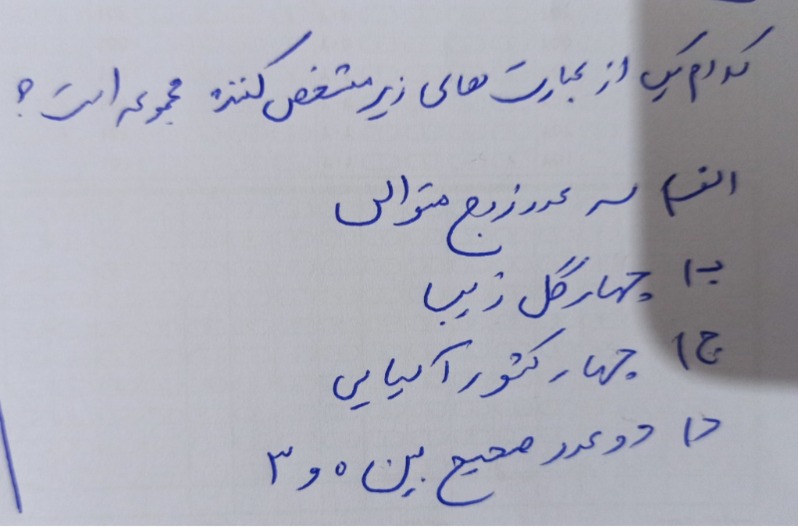 کدام یک از عبارت های زیر مشخص کننده مجموعه است؟
الف) سه عدد زوج متوالی
ب) چهار گل زیبا
ج) چهار کشور آسیایی
د) دو عدد صحیح بین ۰ و ۳